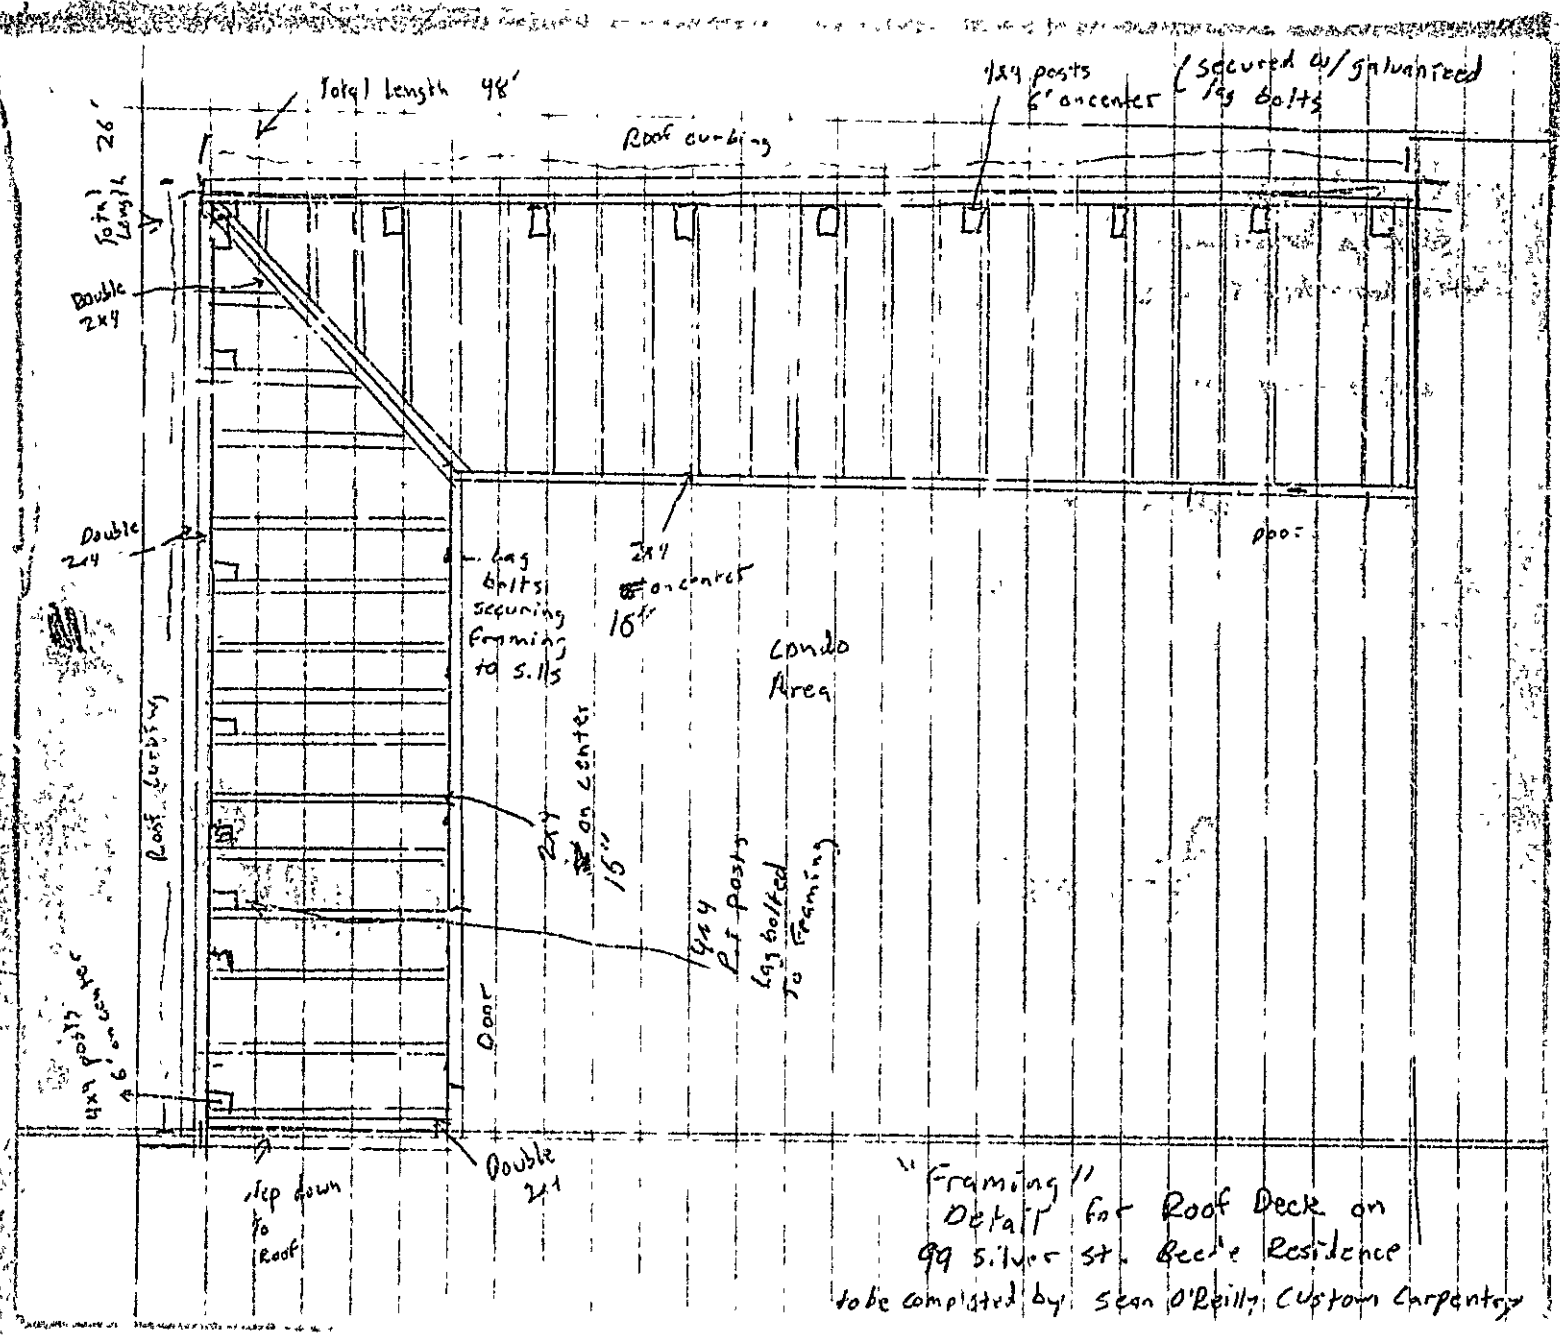 Total Length 48'
4x4 posts
6' on center
(secured w/ galvanized
lag bolts
Roof curbing
Total Length 26'
Double
2x4
Double
2x4
Lag
bolts
securing
Framing
to sills
2x4
on center
16"
Door
Condo
Area
Roof curbing
2x4
on center
16"
4x4
P.T posts
Lag bolted
To Framing
Door
4x4 posts
6' on center
Double
2x4
step down
to
Roof
"Framing"
Detail for Roof Deck on
99 Silver St.
Residence
to be completed by Sean O'Reilly Custom Carpentry